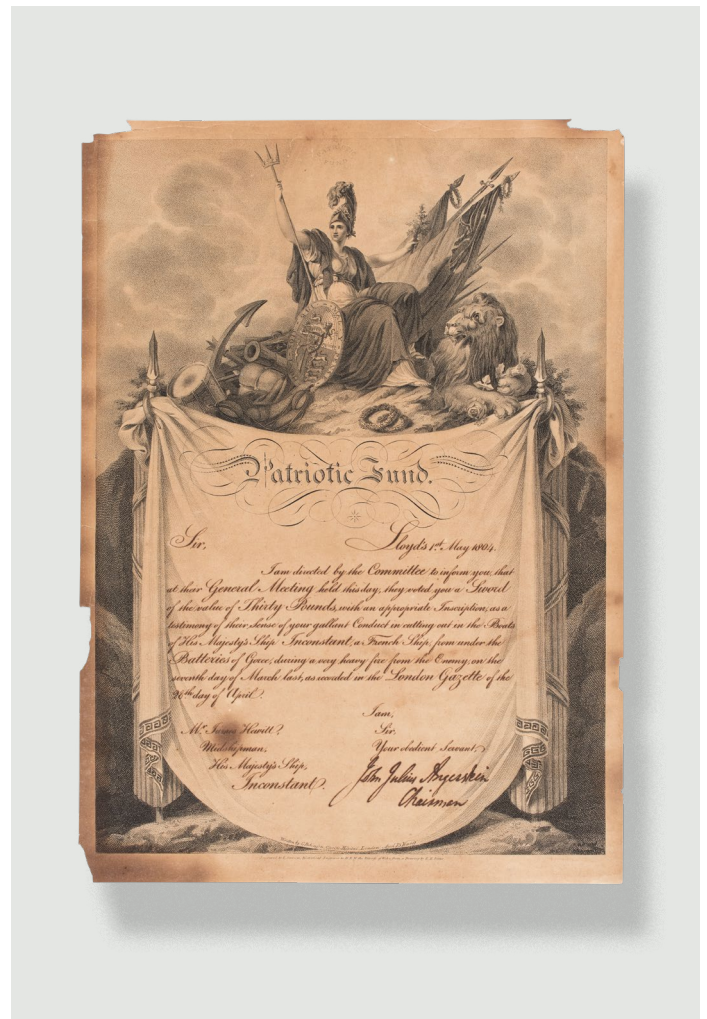 Patriotic Fund.
Sir, Lloyd's 1st May 1804.
I am directed by the Committee to inform you, that
at their General Meeting held this day, they voted you a Sword
of the value of Thirty Pounds, with an appropriate Inscription, as a
testimony of their sense of your gallant Conduct in cutting out in the Boats
of His Majesty's Ship Inconstant, a French Ship, from under the
Batteries of Goree, during a very heavy fire from the Enemy, on the
seventh day of March last, as recorded in the London Gazette of the
26th day of April.
I am,
Mr. James Hewitt, Sir,
Midshipman, Your obedient Servant,
His Majesty's Ship, John Julius Angerstein
Inconstant. Chairman